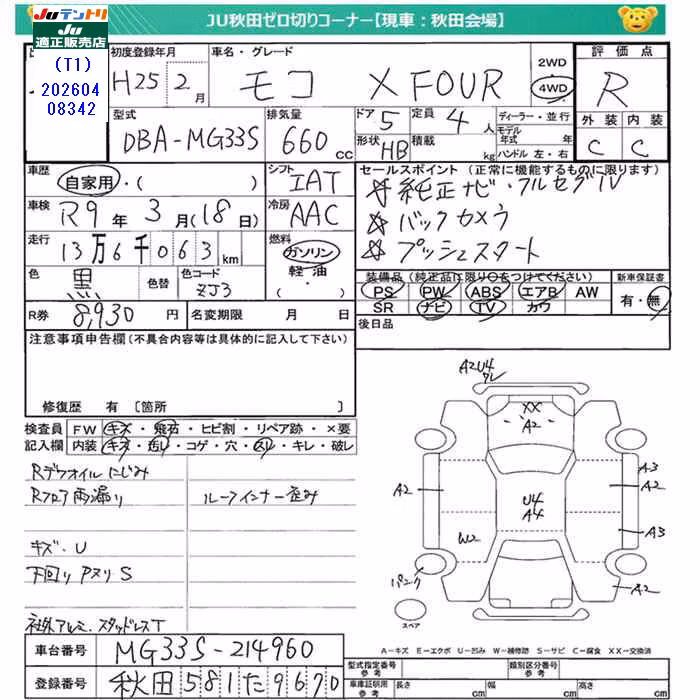 JU秋田ゼロ切りコーナー【現車：秋田会場】
JU テントリ
JU適正販売店
(T1)
202604
08342
初度登録年月 車名・グレード
H25年 2月 モコ X FOUR
2WD
4WD
評価点
R
型式 排気量 ドア 定員 ディーラー・並行
DBA-MG33S 660cc 5 4人
形状 積載 モデル年式 年
HB kg ハンドル 左・右
外装 内装
C C
車歴 自家用・( )
シフト IAT
セールスポイント (正常に機能するものに限ります)
☆ 純正ナビ・フルセグTV
☆ バックカメラ
☆ プッシュスタート
車検 R9年 3月(18日)
冷房 AAC
走行 13万6千063km
燃料 ガソリン・軽油・( )
色 黒 色替 色コード ZJ3
装備品 (純正品に限り○をつけてください) 新車保証書
PS PW ABS エアB AW 有・無
SR ナビ TV カワ
R券 8,930円 名変期限 月 日
後日品
注意事項申告欄(不具合内容等は具体的に記入して下さい)
修復歴 有 [箇所 ]
検査員 FW キズ・飛石・ヒビ割・リペア跡・×要
記入欄 内装 キズ・汚レ・コゲ・穴・スレ・キレ・破レ
Rデフオイルにじみ
Rフロア雨漏り ルーフインナー歪み
キズ・U
下回りアヌリS
社外アルミ、スタッドレスT
A2U4
ワレ
XX
A2
A3
A2
A2
U4
A4
A3
W2
パンク
A2
スペア
A－キズ E－エクボ U－凹み W－補修跡 S－サビ C－腐食 XX－交換済
車台番号 MG33S-214960
登録番号 秋田581た9670
型式指定番号 参考 類別区分番号 参考
車庫証明用 参考 長さ cm 幅 cm 高さ cm